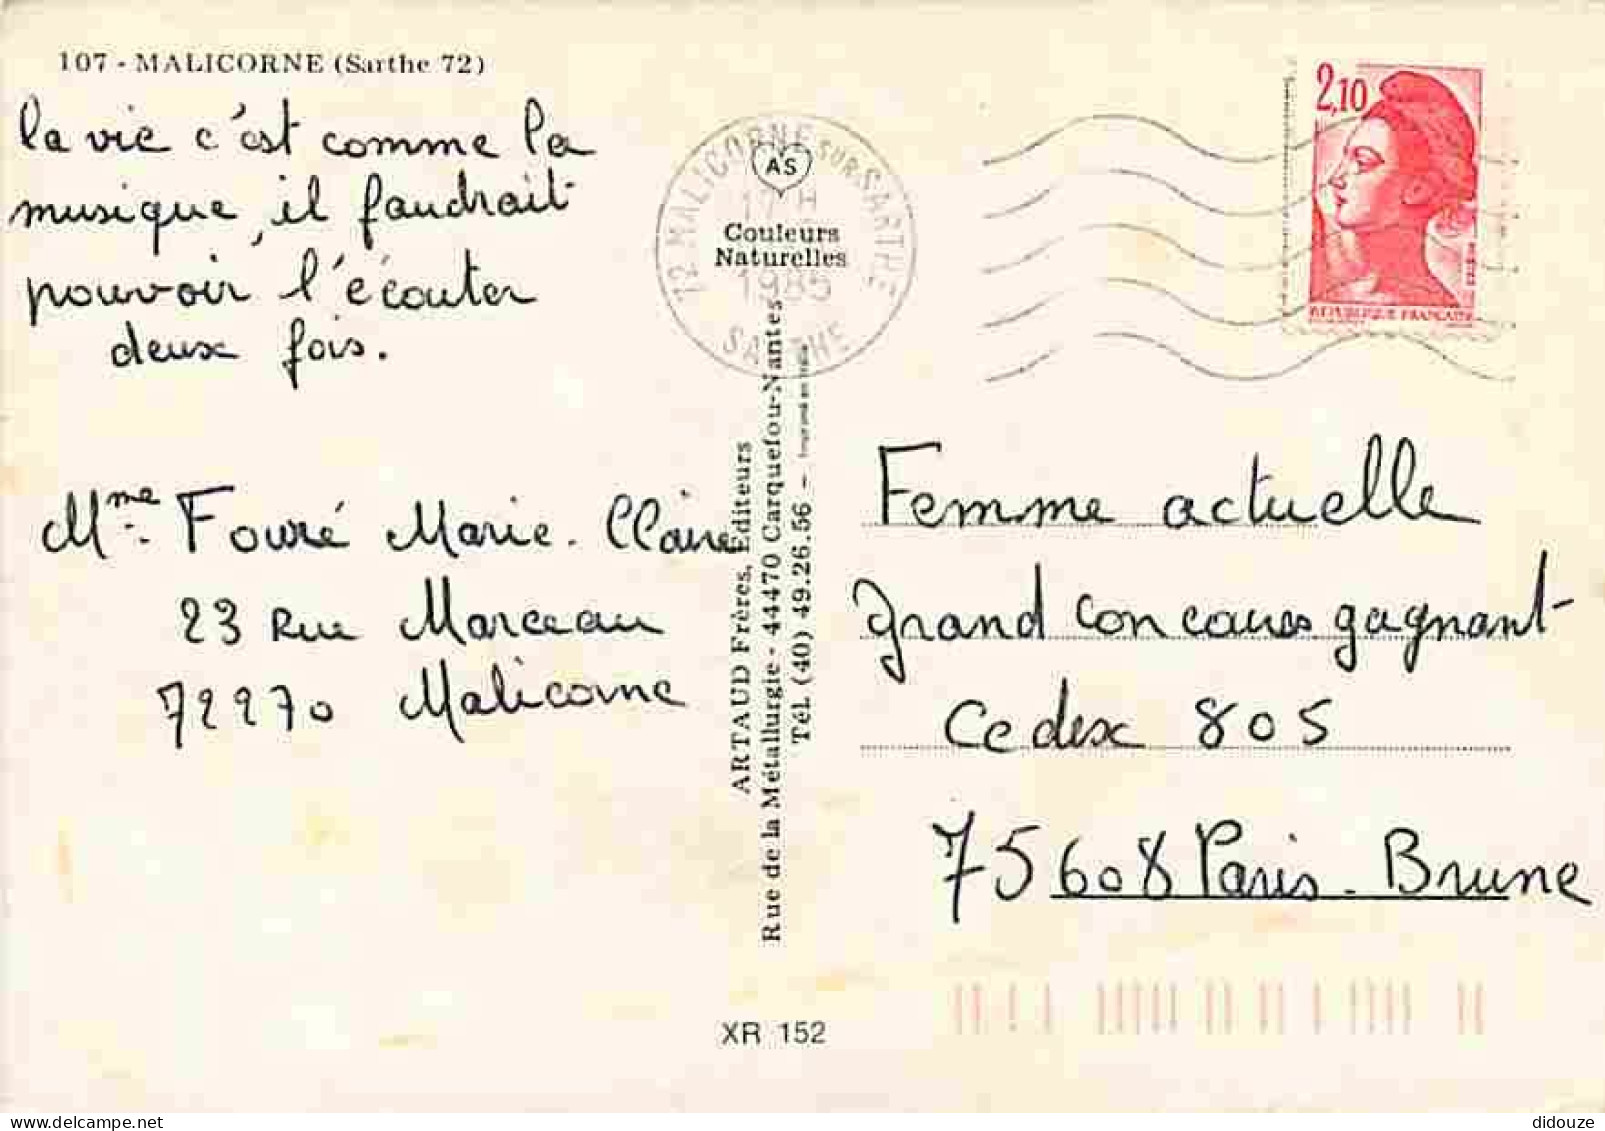 107 - MALICORNE (Sarthe 72)
la vie c'est comme la
musique, il faudrait
pouvoir l'écouter
deux fois.
Mme Fouré Marie-Claire
23 Rue Marceau
72270 Malicorne
72 MALICORNE SUR SARTHE
17 H
1985
SARTHE
AS
Couleurs
Naturelles
ARTAUD Frères, Éditeurs
Rue de la Métallurgie - 44470 Carquefou-Nantes
Tél. (40) 49.26.56 –
XR 152
2,10
REPUBLIQUE FRANÇAISE
Femme actuelle
Grand concours gagnant
Cedex 805
75608 Paris-Brune
didouze